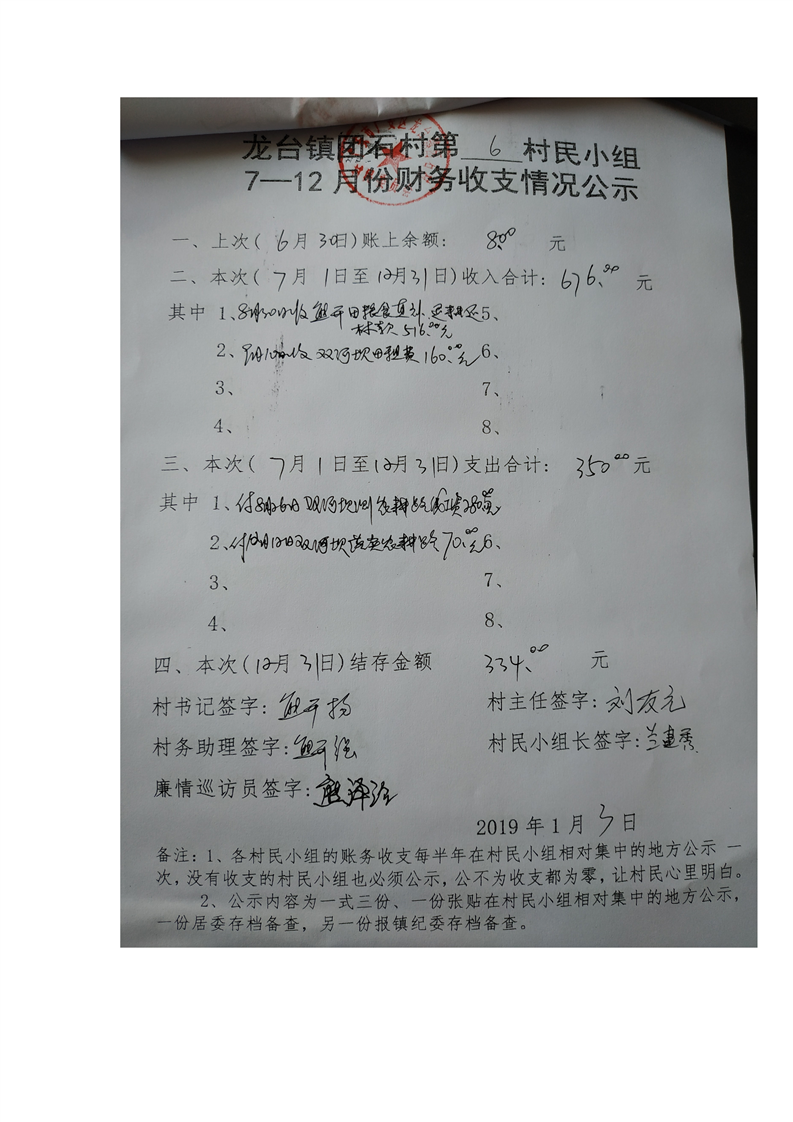 龙台镇团石村第 6 村民小组
7—12月份财务收支情况公示
一、上次(6月30日)账上余额: 8.00 元
二、本次(7月1日至12月31日)收入合计: 676.00 元
其中 1、 5、
516.00元
2、 双河坝田租费160.00元 6、
3、 7、
4、 8、
三、本次(7月1日至12月31日)支出合计: 350.00 元
其中 1、
2、 70.00元 6、
3、 7、
4、 8、
四、本次(12月31日)结存金额 334.00 元
村书记签字: 熊开扬 村主任签字: 刘友元
村务助理签字: 村民小组长签字: 兰建秀
廉情巡访员签字:
2019年1月3日
备注:1、各村民小组的账务收支每半年在村民小组相对集中的地方公示 一
次,没有收支的村民小组也必须公示,公不为收支都为零,让村民心里明白。
2、公示内容为一式三份、一份张贴在村民小组相对集中的地方公示,
一份居委存档备查,另一份报镇纪委存档备查。